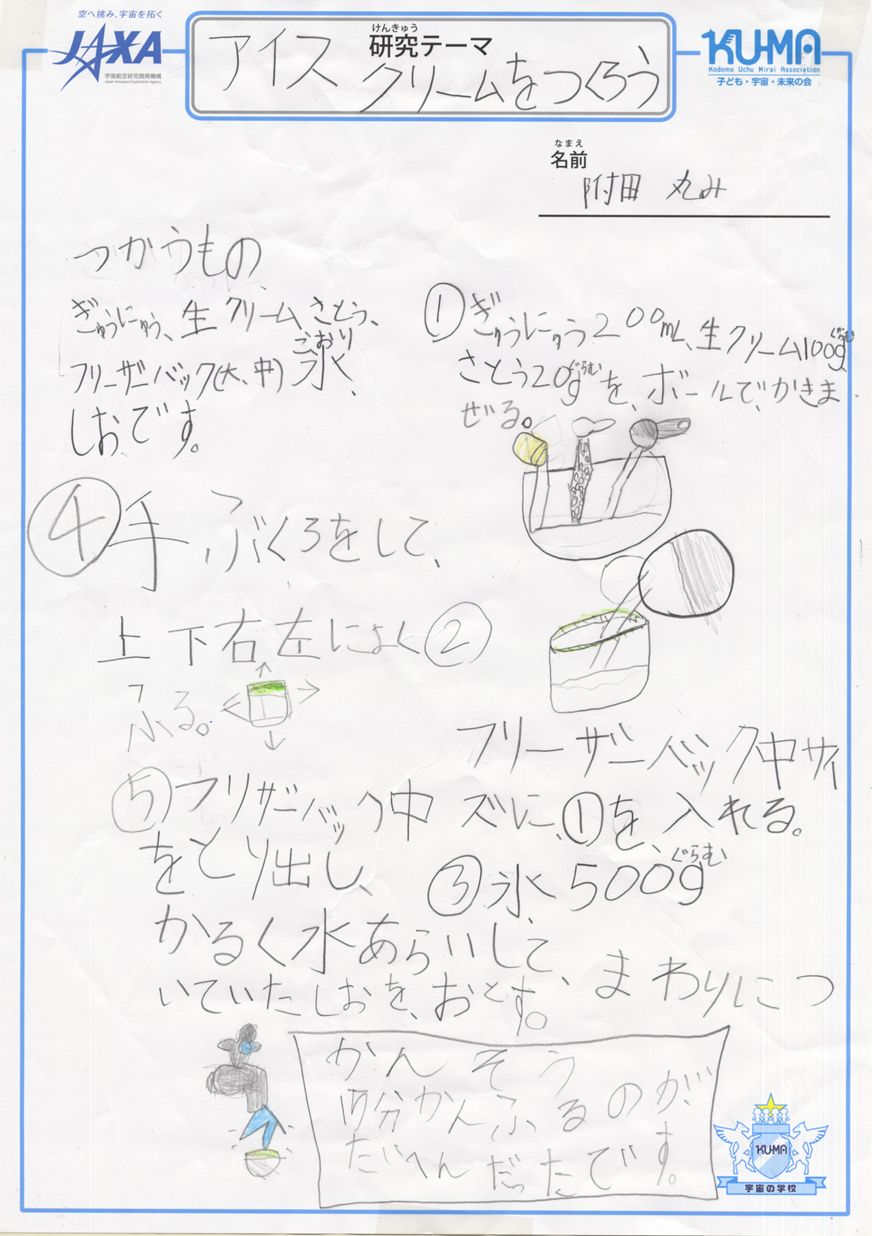 空へ挑み、宇宙を拓く
JAXA
宇宙航空研究開発機構
Japan Aerospace Exploration Agency
けんきゅう
研究テーマ
アイス
クリームをつくろう
KU-MA
Kodomo Uchu Mirai Association
子ども・宇宙・未来の会
なまえ
名前
附田 丸み
つかうもの
ぎゅうにゅう、生クリーム、さとう、
こおり
フリーザーバック(大、中)氷、
しお、です。
①ぎゅうにゅう200mL、生クリーム100g
ぐらむ
さとう20gを、ボールで、かきま
ぐらむ
ぜる。
②
フリーザーバック中サイ
ズに、①を、入れる。
③氷500g
ぐらむ
④手ぶくろをして、
上下右左によく
ふる。
⑤フリザーバック中
をとり出し、
かるく水あらいして、まわりにつ
いていたしおを、おとす。
かんそう
分かんふるのが
たいへんだったです。
KU-MA
宇宙の学校